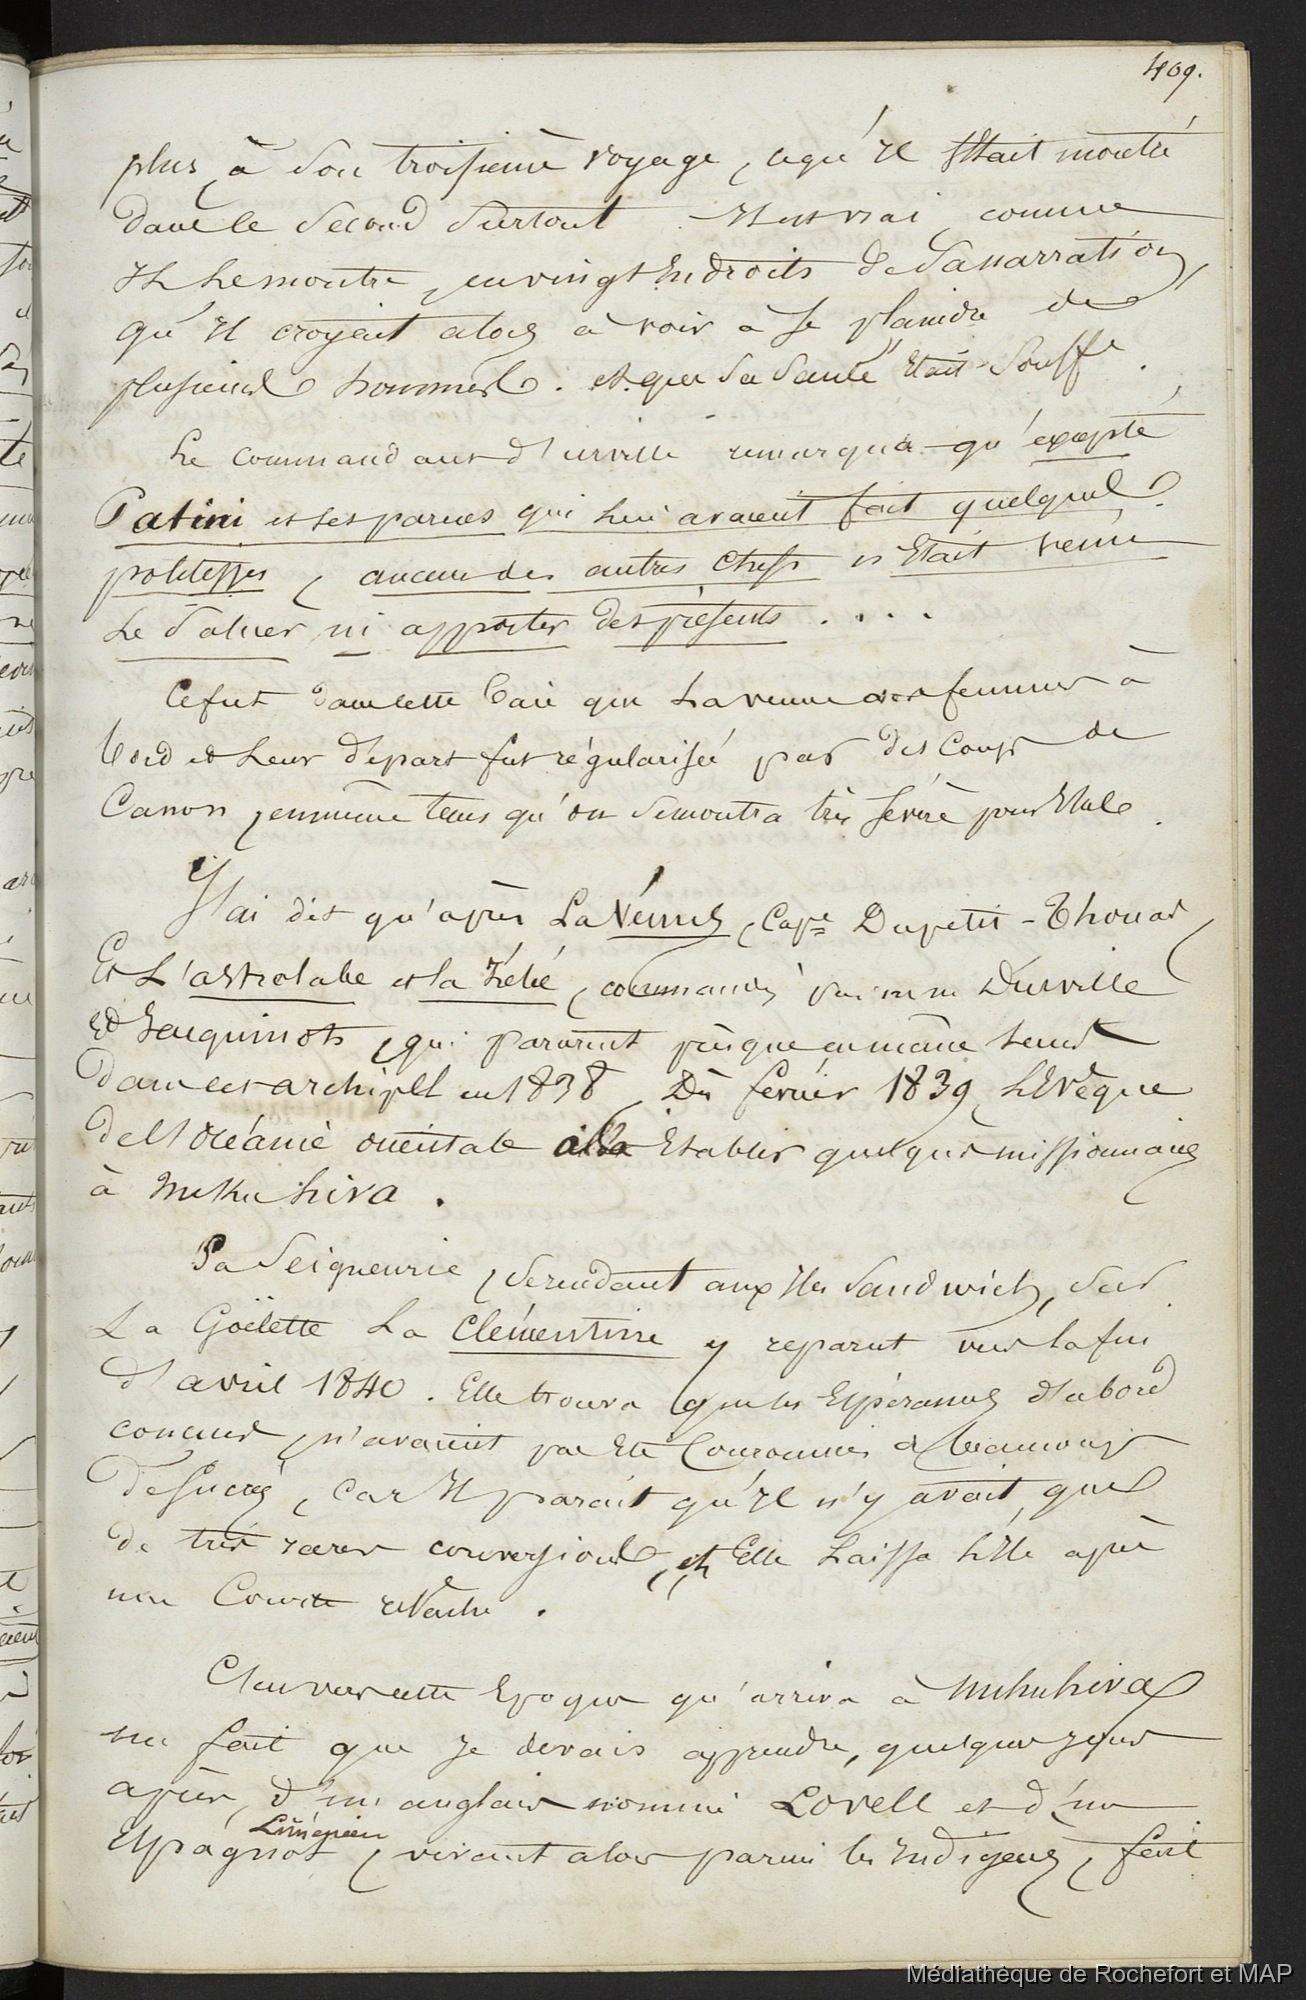 409.
plus, à son troisième voyage, ce qu'il s'était montré
dans le second surtout. Il est vrai, comme
il le montre, en vingt endroits de sa narration,
qu'il croyait alors avoir à se plaindre de
plusieurs hommes. et que sa santé était souffte.
Le commandant d'urville remarqua qu'excepté
Patini et ses parens qui lui avaient fait quelques
politesses, aucun des autres chefs n'était venu
le saluer, ni apporter des présents . . . .
Ce fut dans cette baie que la venue des femmes à
bord et leur départ fut régularisé par des coups de
Canon, en même tems qu'on se montra très sévère pour
J'ai dit qu'après La Vénus, Cape Dupetit-Thouars
Et L'astrolabe et la Zélée, commandés par mm Durville
et Jacquinots, qui parurent presque en même tems
dans cet archipel en 1838, Dès février 1839, l'Evêque
de l'océanie orientale alla Etablir quelques missionnaires
à Nukuhiva.
Sa Seigneurie, se rendant aux Iles Sandwich, sur
La Goëlette La Clémentine y reparut vers la fin
d'avril 1840. Elle trouva que les Espérances d'abord
concues, n'avaient pas Eté Couronnées de beaucoup
de succès, car il parait qu'il n'y avait que
de très rares conversions, et Elle laissa l'île après
une Courte relâche.
C'est vers cette Epoque qu'arriva à Nukuhiva
un fait que je devais apprendre, quelques jours
après, d'un anglais nommé Lovell et d'un
Liménien
Espagnol, vivant alors parmi les Indigènes, fait
Médiathèque de Rochefort et MAP